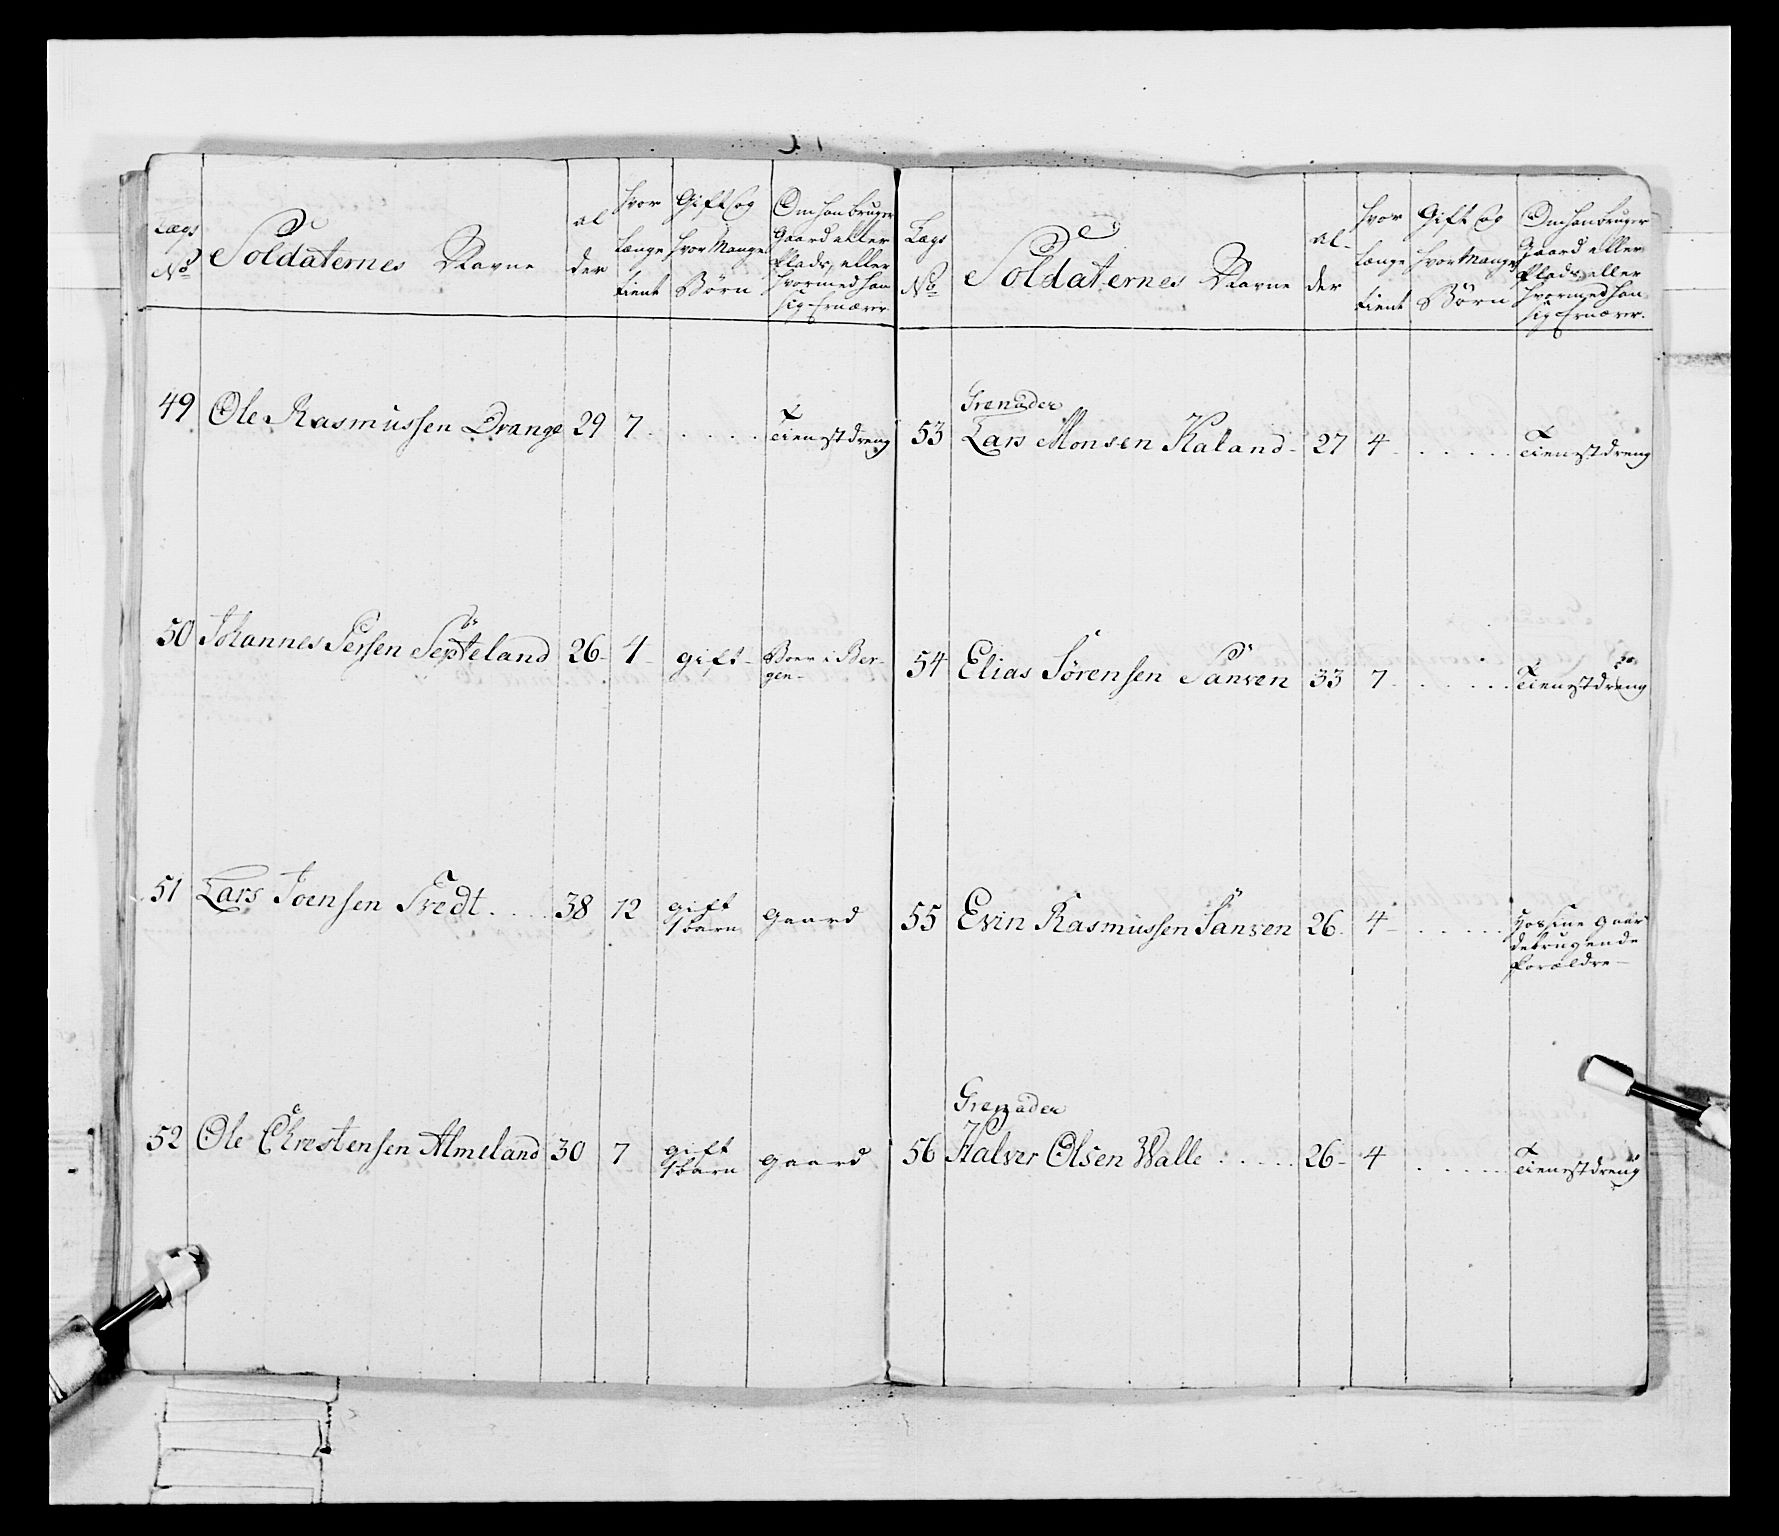 Lægs No
Soldaternes Navne
al der
hvor længe tient
Gift og hvor Mange Børn
Om han bruger Gaard eller Plads, eller hvormed han sig Ernærer.
49 Ole Rasmussen Drange 29 7 . . . . . Tienestdreng
50 Johannes Persen Septeland 26 4 gift Boer i Ber-
gen
51 Lars Joensen Tvedt . . . 38 12 gift 1 barn gaard
52 Ole Christensen Almeland 30 7 gift 1 barn gaard
Lægs No
Soldaternes Navne
al- der
hvor længe tient
Gift og hvor Mange Børn
Om han bruger Gaard eller Plads, eller hvormed han sig Ernærer.
Grenader
53 Lars Monsen Kaland 27 4 . . . . . Tienestdreng
54 Elias Sørensen Sanven 33 7 . . . . . Tienestdreng
55 Evin Rasmussen Sanven 26 4 . . . . . Hos sine gaar
debrugende
Forældre
Grenader
56 Halver Olsen Walle . . . . . 26 4 . . . . . Tienestdreng